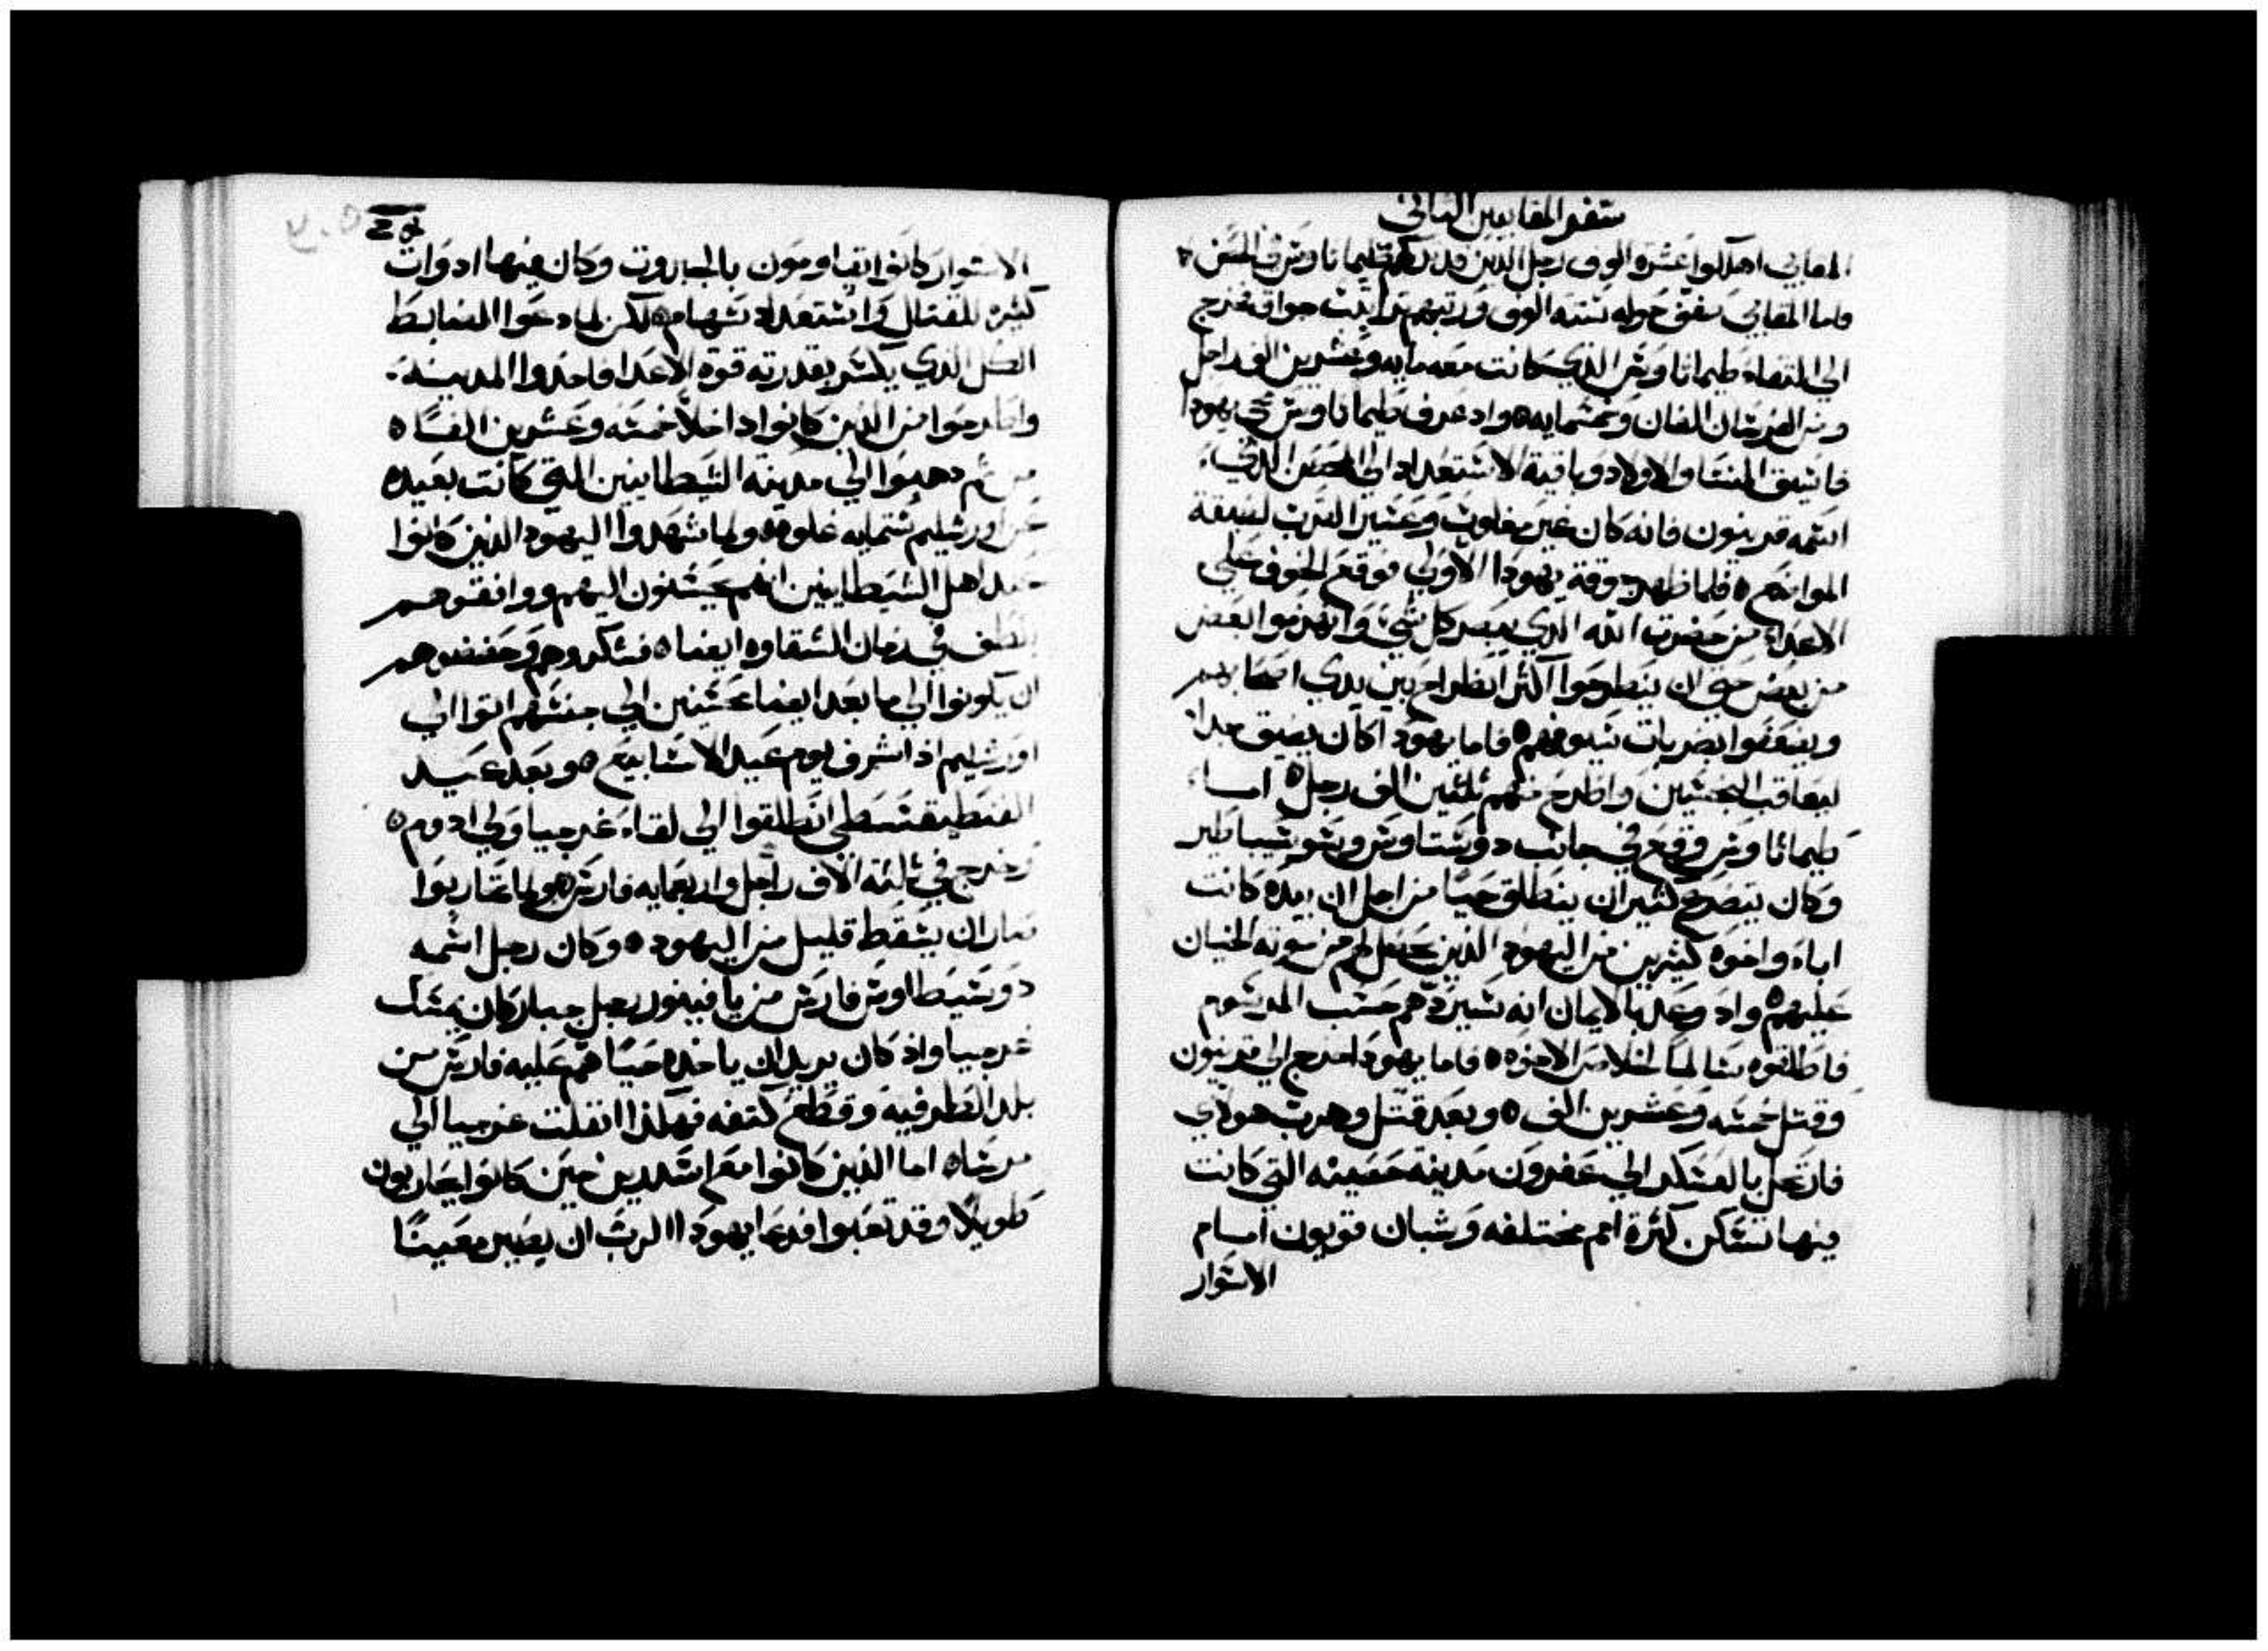 سفر المقابيين الثاني
المقابي اهلكوا عشرة الوف رجل الذين قد تركهم طيماتاوس في الحصن
فاما المقابي صفف حوله ستة الوف ورتبهم جواق فخرج
الي الملتقاه طيماتاوس الذي كانت معه مايه وعشرين الف راجل
ومن الفرسان الفان وخمسمايه ٥ واذ عرف طيماتاوس بمجي يهودا
فاسبق النسا والاولاد وباقية الاستعداد الي الحصن الذي
اسمه قرنيون فانه كان غير مغلوب وعسر القرب لضيقة
المواضع ٥ فلما ظهرت وقة يهودا الاولي فوقع الخوف علي
الاعدا من حضرت الله الذي يبصر كل شي وانهزموا البعض
من بعض حتي ان ينطرحوا اكثر انطراح بين يدي اصحابهم
ويضعفوا بضربات سيوفهم ٥ فاما يهودا كان يضيق جدا
ليعاقب النجسين واطرح منهم ثلثين الف رجل ٥ اما
طيماتاوس فوقع في جانب دوسيتاوس وسوسيباطير
وكان يتضرع كثير ان ينطلق حيا من اجل ان بيده كانت
اباء واخوه كثيرين من اليهود الذين يحصل لهم من موته الخسران
عليهم ٥ واذ وعد بالايمان انه سيردهم حسب المرسوم
فاطلقوه سالما لخلاص الاخوه ٥ فاما يهودا خرج الي قرنيون
وقتل خمسه وعشرين الف ٥ وبعد قتل وهرب هولاي
فارتحل بالعسكر الي عفرون مدينه حصينه التي كانت
فيها تسكن كثرة امم مختلفه وشبان قويون امام
الاسوار
الاسوار كانوا يقاومون بالجبروت وكان فيها ادوات
كثيره للقتال واستعداد سهام ٥ لكن لما دعوا الضابط
الكل الذي يكسر بقدرته قوة الاعدا فاخدوا المدينه
واطرحوا من الذين كانوا داخلا خمسه وعشرين الفا ٥
من ثم دهبوا الي مدينة السطابيين التي كانت بعيده
عن اورشليم ستمايه غلوه ٥ ولما شهدوا اليهود الذين كانوا
عند اهل السيطابيين انهم يحسنون اليهم ووافقوهم
بلطف في زمان الشقاوه ايضا ٥ فشكروهم وحضضوهم
ان يكونوا الي ما بعد ايضا محسنين الي جنسهم اتوا الي
اورشليم اذ اشرف يوم عيد الاسابيع ٥ وبعد عيد
الفنطيقسطي انطلقوا الي لقاء غرجيا ولي ادوم ٥
وخرج في ثلثه الاف راجل واربعمايه فارس ٥ ولما تحاربوا
صار ان يسقط قليل من اليهود ٥ وكان رجل اسمه
دوسيطاوس فارس من يافينور رجل جبار كان يمسك
غرجيا واذ كان يريد ان ياخده حيا هجم عليه فارس من
بلد الطرفيه وقطع كتفه فهكذا انفلت غرجيا الي
مرسا ٥ اما الذين كانوا مع اسدرين حين كانوا يحاربون
طويلا وقد تعبوا فدعا يهودا الرب ان يصير معينا